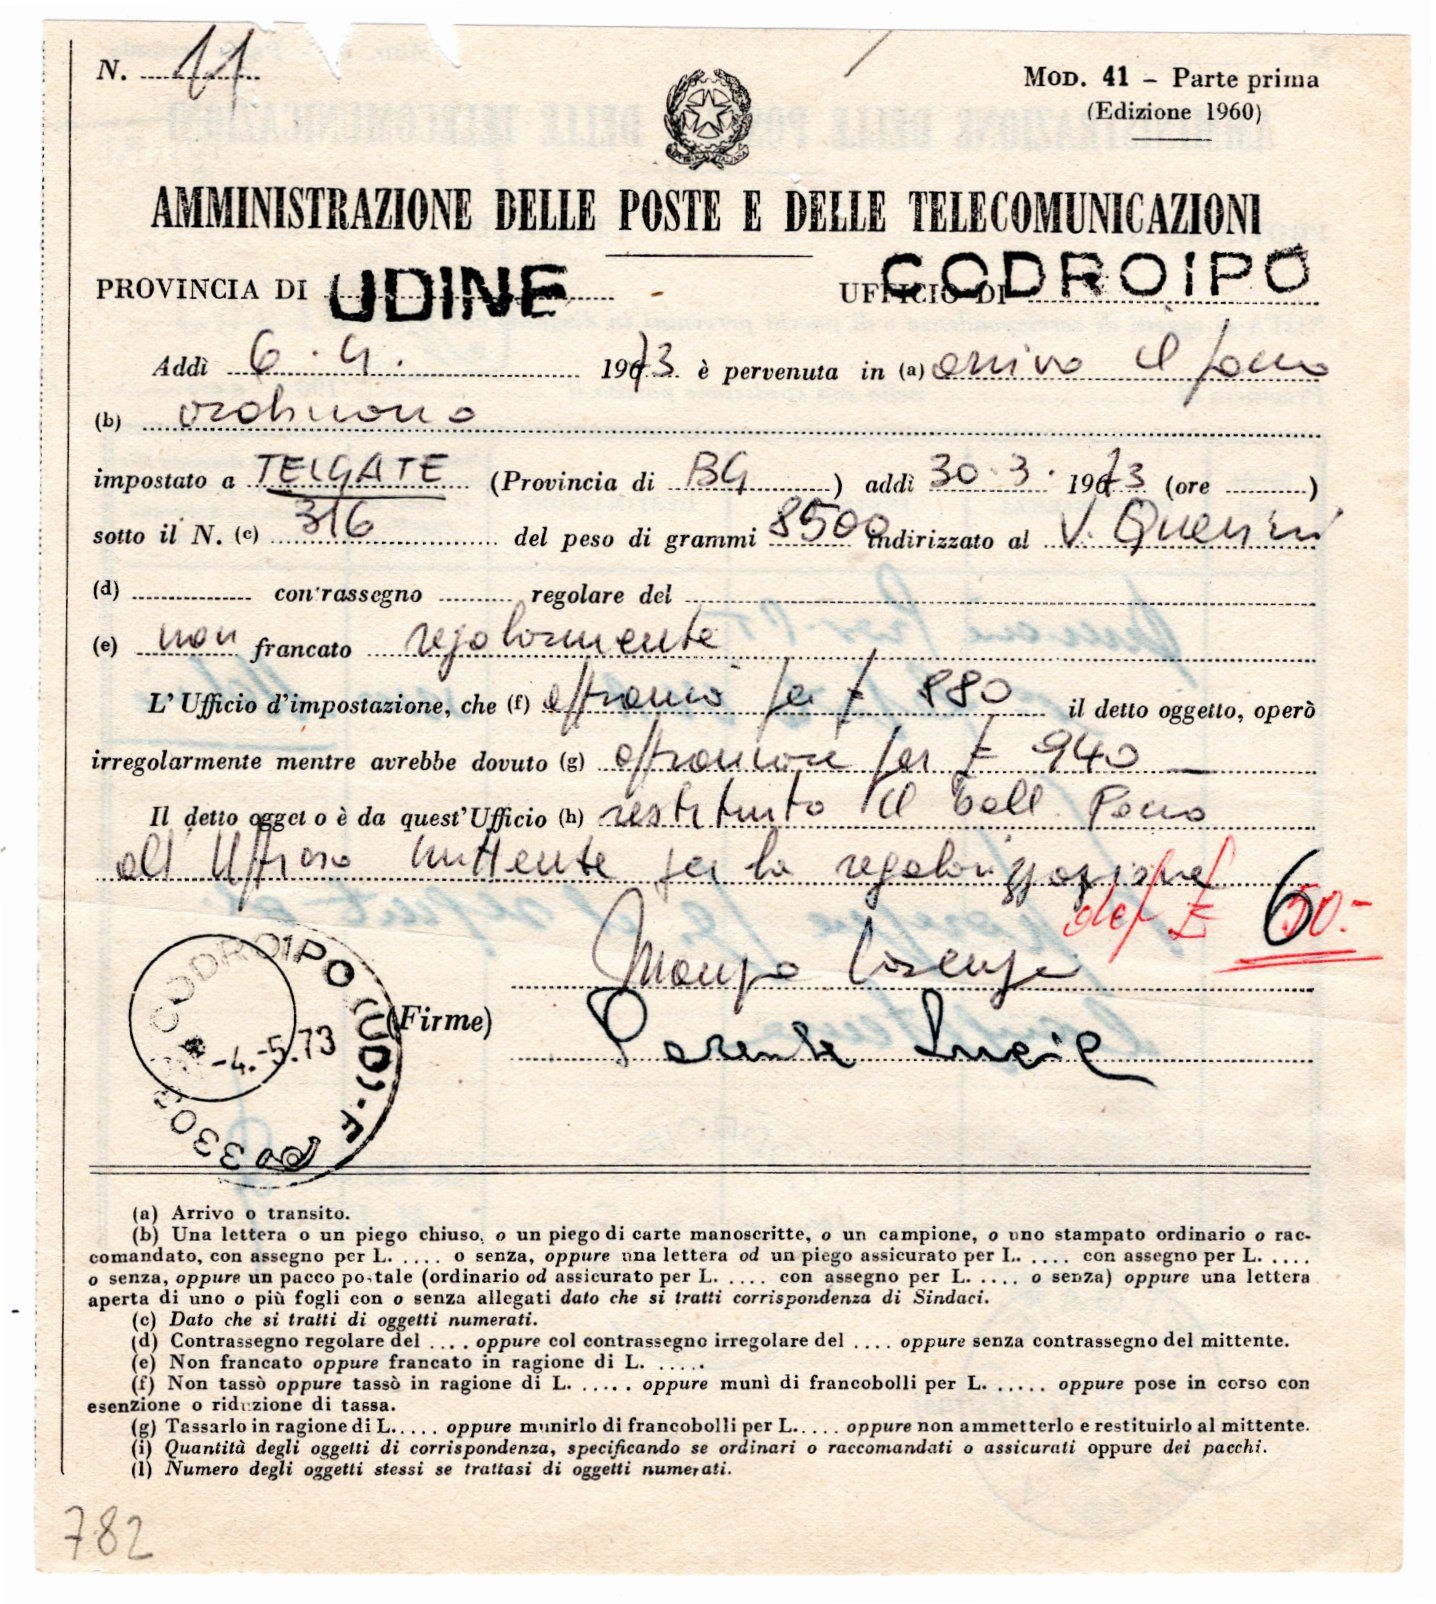 N. 11
MOD. 41 - Parte prima
(Edizione 1960)
AMMINISTRAZIONE DELLE POSTE E DELLE TELECOMUNICAZIONI
PROVINCIA DI UDINE UFFICIO DI CODROIPO
Addì 6.4. 1973 è pervenuta in (a) arrivo il pacco
(b) ordinario
impostato a TELGATE (Provincia di BG) addì 30.3. 1973 (ore ..........)
sotto il N. (c) 316 del peso di grammi 8500 indirizzato al V. Querini
(d) .............. contrassegno .......... regolare del
(e) non francato regolarmente
L'Ufficio d'impostazione, che (f) affrancò per £ 880 il detto oggetto, operò
irregolarmente mentre avrebbe dovuto (g) affrancare per £ 940
Il detto oggetto è da quest'Ufficio (h) restituito il boll. Pacco
all'Ufficio mittente per la regolarizzazione
def £ 60.-
(Firme)
Parente Lucia
CODROIPO (UD) - F
-4.-5.73
3303
(a) Arrivo o transito.
(b) Una lettera o un piego chiuso, o un piego di carte manoscritte, o un campione, o uno stampato ordinario o rac-
comandato, con assegno per L. .... o senza, oppure una lettera od un piego assicurato per L. .... con assegno per L. ....
o senza, oppure un pacco postale (ordinario od assicurato per L. .... con assegno per L. .... o senza) oppure una lettera
aperta di uno o più fogli con o senza allegati dato che si tratti corrispondenza di Sindaci.
(c) Dato che si tratti di oggetti numerati.
(d) Contrassegno regolare del .... oppure col contrassegno irregolare del .... oppure senza contrassegno del mittente.
(e) Non francato oppure francato in ragione di L. .....
(f) Non tassò oppure tassò in ragione di L. ..... oppure munì di francobolli per L. ..... oppure pose in corso con
esenzione o riduzione di tassa.
(g) Tassarlo in ragione di L..... oppure munirlo di francobolli per L..... oppure non ammetterlo e restituirlo al mittente.
(i) Quantità degli oggetti di corrispondenza, specificando se ordinari o raccomandati o assicurati oppure dei pacchi.
(l) Numero degli oggetti stessi se trattasi di oggetti numerati.
782